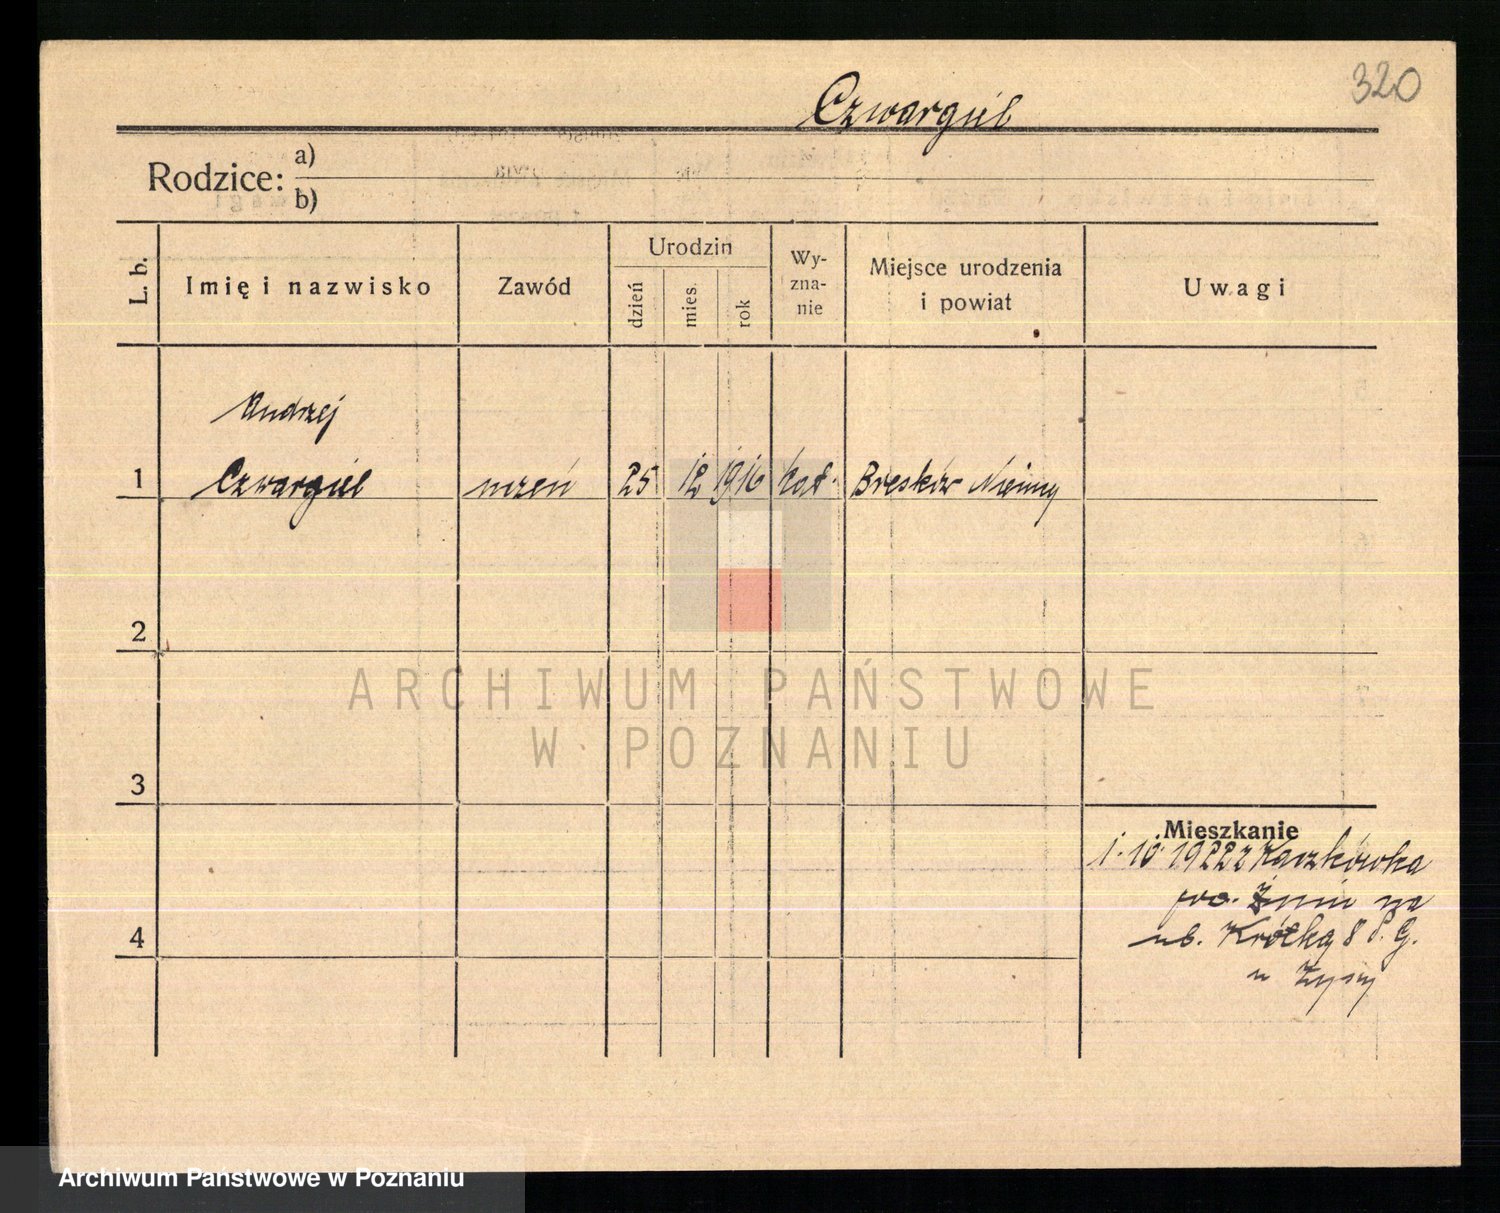 320
Czwargiel
Rodzice:
a)
b)
L. b.
Imię i nazwisko
Zawód
Urodzin
dzień
mies.
rok
Wy-
zna-
nie
Miejsce urodzenia
i powiat
Uwagi
Andrzej
1 Czwargiel uczeń 25 12 1916 kat. Niemcy
2
3
4
Mieszkanie
1. 10. 1922 z Kaczkówka
Żnin na
ub. Krótką 8 P. G.
u
ARCHIWUM PAŃSTWOWE
W POZNANIU
Archiwum Państwowe w Poznaniu